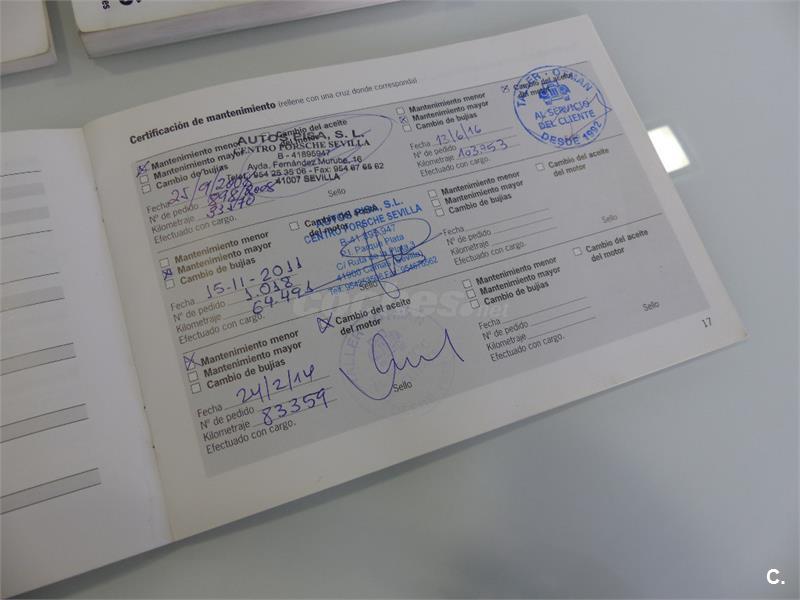 Certificación de mantenimiento (rellene con una cruz donde corresponda)
Mantenimiento menor
Mantenimiento mayor
Cambio de bujías
Cambio del aceite
del motor
AUTOS PISA, S.L.
CENTRO PORSCHE SEVILLA
B - 41895947
Avda. Fernández Murube, 16
Telf. 954 25 35 06 - Fax: 954 67 65 62
41007 SEVILLA
Fecha 25/9/2008
Nº de pedido
Kilometraje 33170
Efectuado con cargo.
Sello
Mantenimiento menor
Mantenimiento mayor
Cambio de bujías
AUTOS PISA, S.L.
CENTRO PORSCHE SEVILLA
B-41895947
P.I. Parque Plata
C/ Ruta de la Plata
41900 Camas, Sevilla
Fecha 15-11-2011
Nº de pedido 1.018
Kilometraje 64.491
Efectuado con cargo.
Sello
Mantenimiento menor
Mantenimiento mayor
Cambio de bujías
Cambio del aceite
del motor
Fecha 24/2/14
Nº de pedido
Kilometraje 83359
Efectuado con cargo.
Sello
Mantenimiento menor
Mantenimiento mayor
Cambio de bujías
Cambio del aceite
del motor
TALLER
AL SERVICIO
DEL CLIENTE
DESDE 1991
Fecha 13/6/16
Nº de pedido
Kilometraje 103953
Efectuado con cargo.
Mantenimiento menor
Mantenimiento mayor
Cambio de bujías
Cambio del aceite
del motor
Fecha
Nº de pedido
Kilometraje
Efectuado con cargo.
Sello
Mantenimiento menor
Mantenimiento mayor
Cambio de bujías
Cambio del aceite
del motor
Fecha
Nº de pedido
Kilometraje
Efectuado con cargo.
Sello
17
coches.net
C.